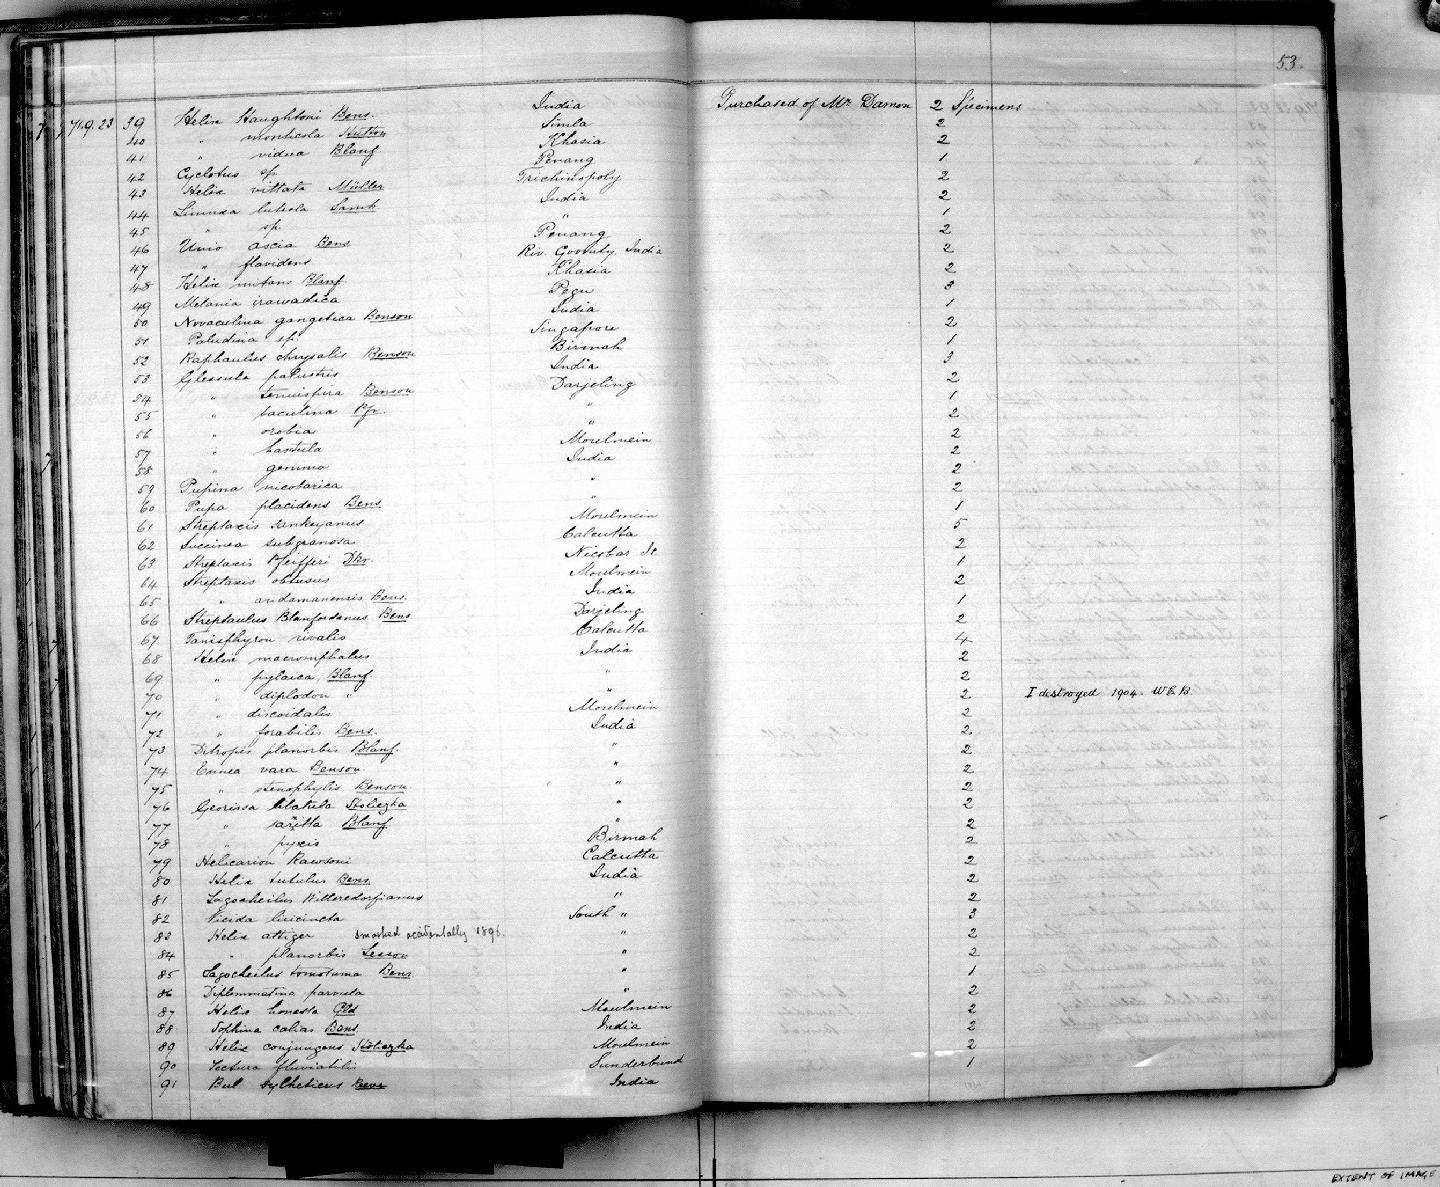 53.
71.9.23 39 Helix Haughtoni Bens. India Purchased of Mr Damon 2 Specimens
40 " monticola Hutton Simla 2
41 " vidua Blanf Khasia 2
42 Cyclotus sp. Penang 1
43 Helix vittata Müller Trichinopoly 2
44 Limnea luteola Lamk India 2
45 " sp. " 1
46 Unio ascia Bens Penang 2
47 " flavidens Riv. Goomty, India 2
48 Helix nutans Blanf Khasia 2
49 Melania irawadica Pegu 3
50 Novaculina gangetica Benson India 1
51 Paludina sp. Singapore 2
52 Raphaulus chrysalis Benson Birmah 1
53 Glessula palustris India 3
54 " tenuispira Benson Darjeling 2
55 " baculina Pfr. " 1
56 " orobia " 2
57 " hastula Moulmein 2
58 " gemma India 2
59 Pupina nicobarica " 2
60 Pupa placidens Bens " 2
61 Streptaxis sankeyanus Moulmein 1
62 Succinea subgranosa Calcutta 5
63 Streptaxis Pfeifferi Dkr. Nicobar Is. 2
64 Streptaxis obtusus Moulmein 1
65 " andamanensis Bens. India 2
66 Streptaulus Blanfordanus Bens Darjeling 1
67 Tanisphyron rivalis Calcutta 2
68 Helix macromphalus India 4
69 " pylaica, Blanf. " 2
70 " diplodon " " 2
71 " discoidalis Moulmein 2 I destroyed 1904. W.E.B.
72 " forabilis Bens. India 2
73 Ditropis planorbis Blanf. " 2
74 Ennea vara Benson " 2
75 " stenophylis Benson " 2
76 Georissa blatula Stoliczka " 2
77 " saritta Blanf " 2
78 " pyxis Birmah 2
79 Helicarion Rawsoni Calcutta 2
80 Helix tutulus Bens India 2
81 Lagocheilus " 2
82 Nicida liricincta South " 2
83 Helix attiger smashed accidentally 1896. " 3
84 " planorbis Lesson " 2
85 Lagocheilus tomotuma Bens " 2
86 Diplommatina parvula " 1
87 Helix honesta Gld Moulmein 2
88 Sophina calias Bens India 2
89 Helix conjungens Stoliczka Moulmein 2
90 Tectura fluviatilis Sunderbund 2
91 Bul sylheticus Reeve India 1
EXTENT OF IMAGE